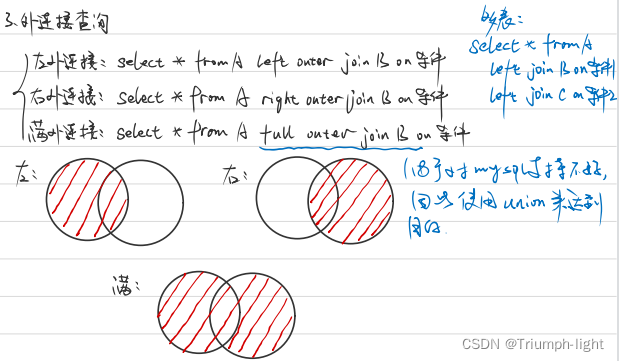 3、外连接查询
左外连接: select * from A left outer join B on 条件
右外连接: select * from A right outer join B on 条件
满外连接: select * from A full outer join B on 条件
多表:
select * from A
left join B on 条件1
left join C on 条件2
左:
右:
(由于 mysql 支持不好,
因此使用 union 来达到
目的.
满:
CSDN @Triumph-light